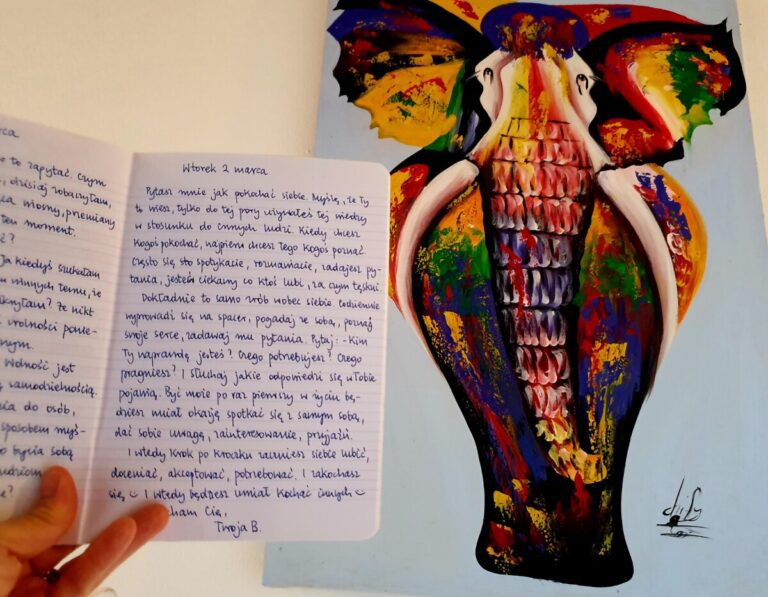 rca
o to zapytać. Czym
, dzisiaj zobaczyłam,
ka wiosny, przemiany
ten moment.
ć?
Ja kiedyś szukałam
w innych temu, że
knęłam? Że nikt
wolności ponie-
nym.
Wolność jest
samodzielnością.
nia do osób,
sposobem myś-
o bycia sobą
ludziom
e?
Wtorek 2 marca
Pytasz mnie jak pokochać siebie. Myślę, że Ty
to wiesz, tylko do tej pory używałeś tej wiedzy
w stosunku do innych ludzi. Kiedy chcesz
kogoś pokochać, najpierw chcesz Tego Kogoś poznać.
Często się sto spotykacie, rozmawiacie, zadajesz py-
tania, jesteś ciekawy co ktoś lubi, za czym tęskni.
Dokładnie to samo zrób wobec siebie. Codziennie
wyprowadź się na spacer, pogadaj ze sobą, poznaj
swoje serce, zadawaj mu pytania. Pytaj: - Kim
Ty naprawdę jesteś? Czego potrzebujesz? Czego
pragniesz? I słuchaj jakie odpowiedzi się w Tobie
pojawią. Być może po raz pierwszy w życiu bę-
dziesz umiał okazję spotkać się z samym sobą,
dać sobie uwagę, zainteresowanie, przyjaźń.
I wtedy krok po kroczku zaczniesz siebie lubić,
doceniać, akceptować, potrzebować. I zakochasz
się I wtedy będziesz umiał kochać innych
cham Cię,
Twoja B.